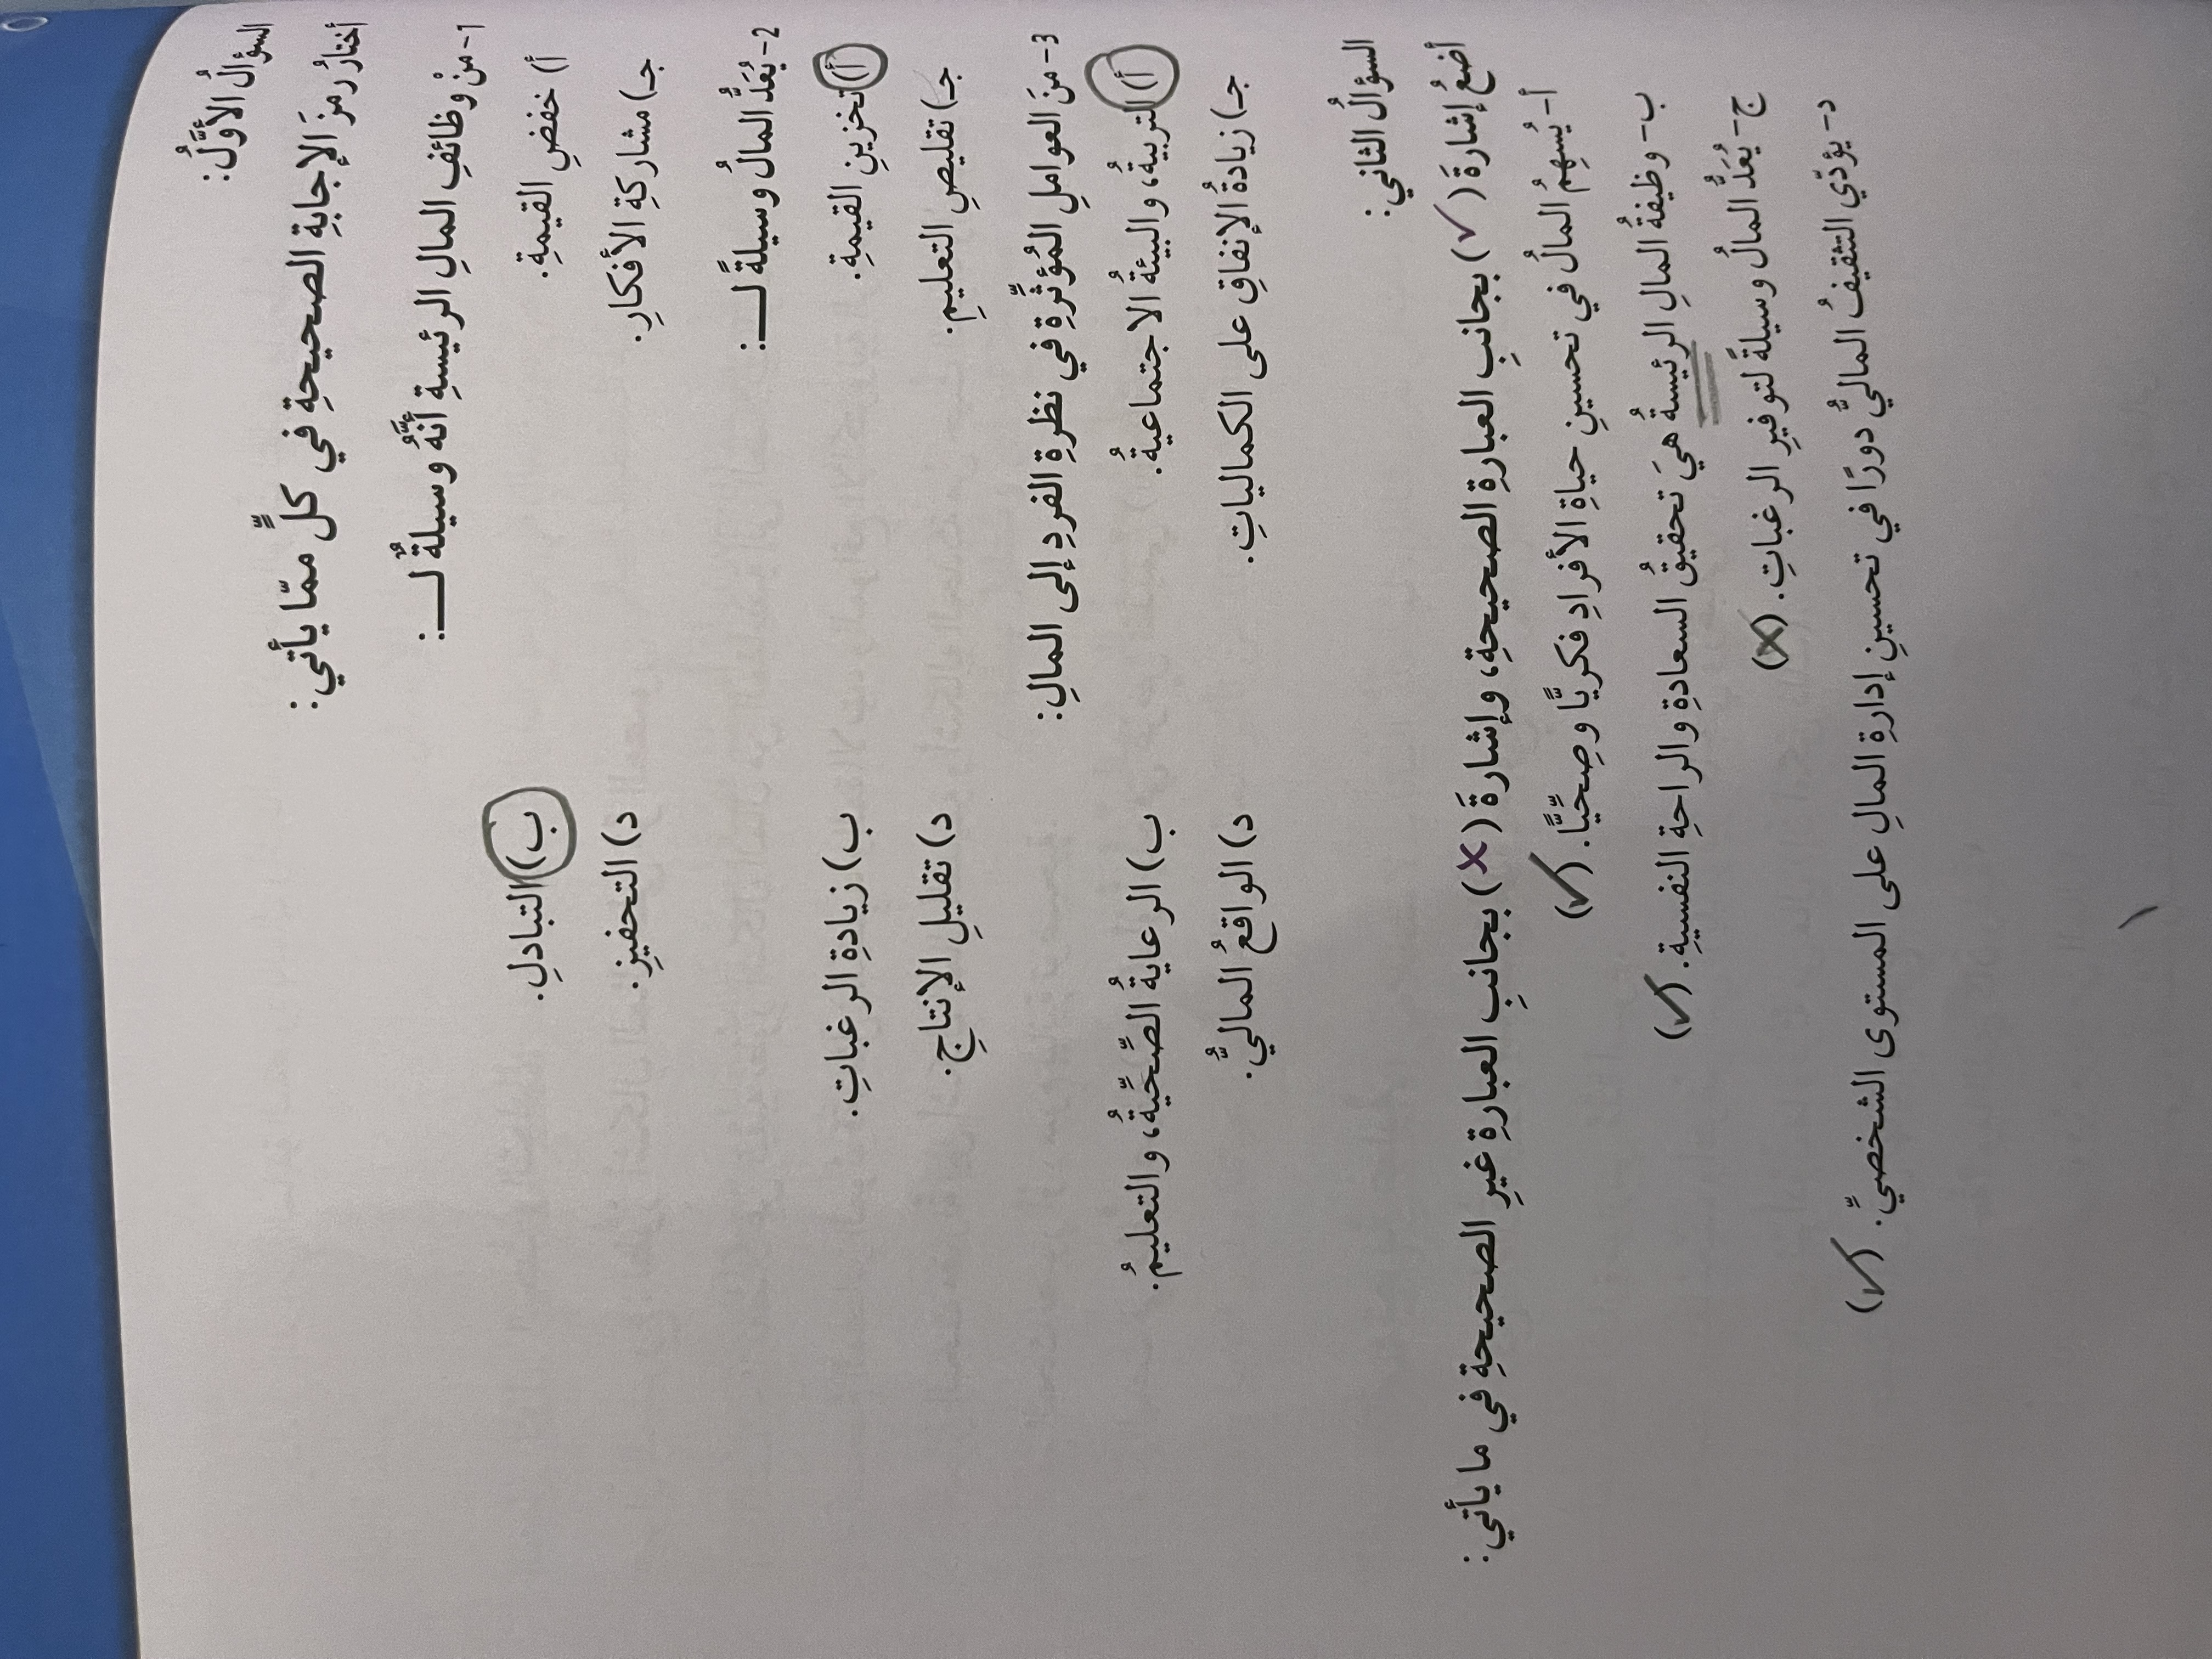 السؤالُ الأوَّلُ:
أختارُ رمزَ الإجابةِ الصحيحةِ في كلٍّ ممّا يأتي:
1- منْ وظائفِ المالِ الرئيسةِ أنَّهُ وسيلةٌ لـــ:
أ) خفضِ القيمةِ. ب) التبادلِ.
جـ) مشاركةِ الأفكارِ. د) التحفيزِ.
2- يُعَدُّ المالُ وسيلةً لـــ:
أ) تخزينِ القيمةِ. ب) زيادةِ الرغباتِ.
جـ) تقليصِ التعليمِ. د) تقليلِ الإنتاجِ.
3- منَ العواملِ المُؤثِّرةِ في نظرةِ الفردِ إلى المالِ:
أ) التربيةُ، والبيئةُ الاجتماعيةُ. ب) الرعايةُ الصِّحِّيةُ، والتعليمُ.
جـ) زيادةُ الإنفاقِ على الكمالياتِ. د) الواقعُ الماليُّ.
السؤالُ الثاني:
أضعُ إشارةَ (✓) بجانبِ العبارةِ الصحيحةِ، وإشارةَ (✗) بجانبِ العبارةِ غيرِ الصحيحةِ في ما يأتي:
أ- يُسهِمُ المالُ في تحسينِ حياةِ الأفرادِ فكريًّا وصِحِّيًّا. (✓)
ب- وظيفةُ المالِ الرئيسةُ هيَ تحقيقُ السعادةِ والراحةِ النفسيةِ. (✓)
ج- يُعَدُّ المالُ وسيلةً لتوفيرِ الرغباتِ. (✗)
د- يؤدّي التثقيفُ الماليُّ دورًا في تحسينِ إدارةِ المالِ على المستوى الشخصيِّ. (✓)